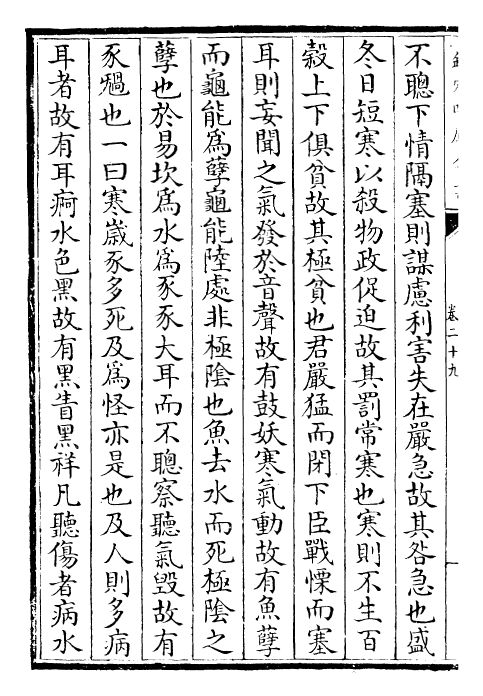 不聰下情隔塞則謀慮利害失在嚴急故其咎急也盛
冬日短寒以殺物政促迫故其罰常寒也寒則不生百
穀上下俱貧故其極貧也君嚴猛而閉下臣戰慄而塞
耳則妄聞之氣發於音聲故有鼓妖寒氣動故有魚孽
而龜能為孽龜能陸處非極陰也魚去水而死極陰之
孽也於易坎為水為豕豕大耳而不聰察聽氣毀故有
豕禍也一曰寒歲豕多死及為怪亦是也及人則多病
耳者故有耳痾水色黑故有黑眚黑祥凡聽傷者病水
卷二十九